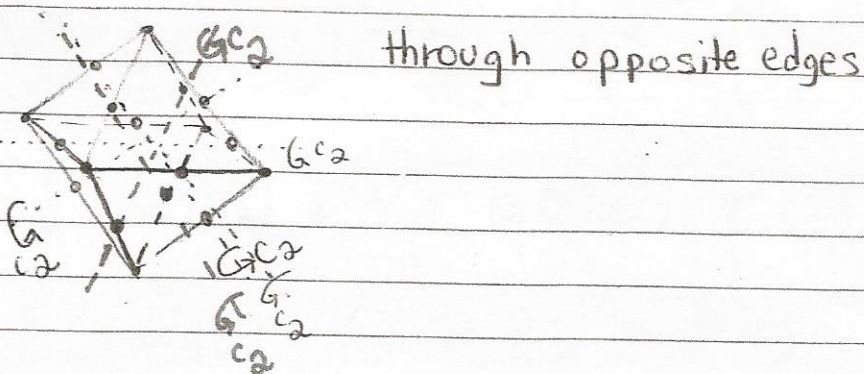 C2 through opposite edges
C2
C2
C2
C2
C2